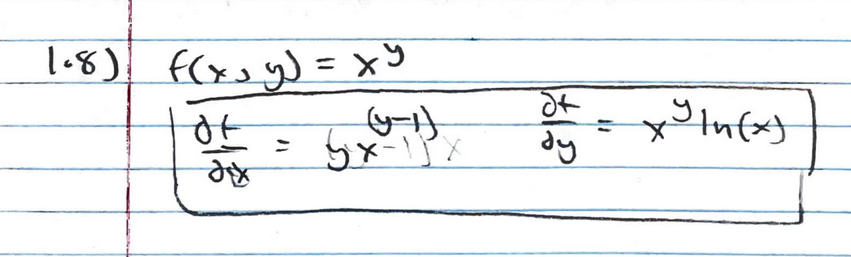 1.8) f(x, y) = x^y
∂f/∂x = yx^(y-1) ∂f/∂y = x^y ln(x)